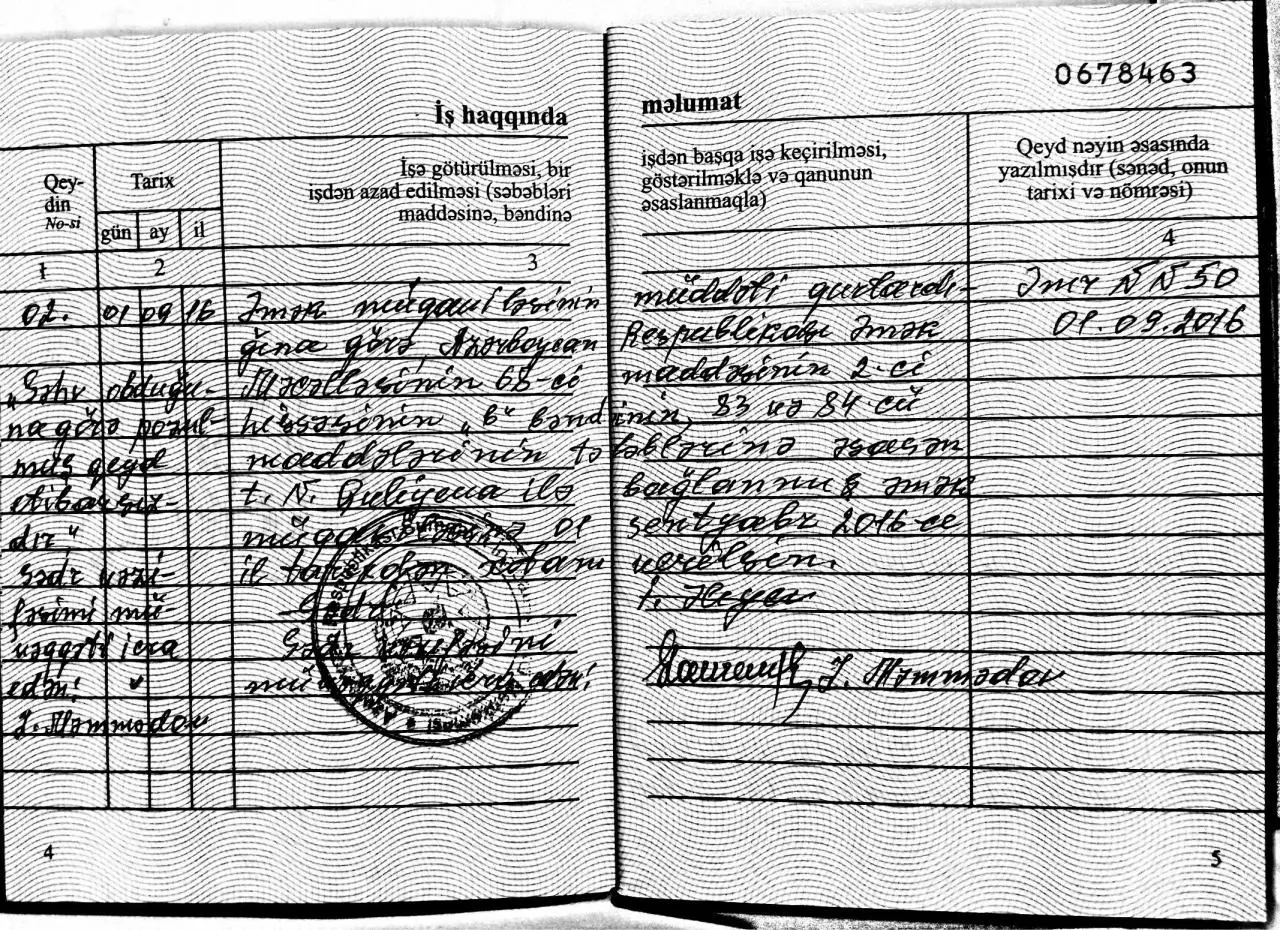 0678463
İş haqqında məlumat
Qey-
din
No-si
Tarix
gün ay il
İşə götürülməsi, bir
işdən azad edilməsi (səbəbləri
maddəsinə, bəndinə
işdən başqa işə keçirilməsi,
göstərilməklə və qanunun
əsaslanmaqla)
Qeyd nəyin əsasında
yazılmışdır (sənəd, onun
tarixi və nömrəsi)
1 2 3 4
02. 01 09 16 Əmək müqaviləsinin müddəti qurtardı- Əmr № 50
ğına görə, Azərbaycan Respublikası Əmək 01.09.2016
"Səhv olduğu- Məcəlləsinin 68-ci maddəsinin 2-ci
na görə pozul- hissəsinin "b" bəndinin, 83 və 84-cü
muş qeyd maddələrinin tələblərinə əsasən
etibarsız- t. N. Quliyeva ilə bağlanmış əmək
dır" müqaviləsinə 01 sentyabr 2016-ce
Sədr vəzi- il tarixdən xitam verilsin.
fəsini mü-
vəqqəti icra Sədr vəzifəsini
edəni: müvəqqəti icra edəni: J. Məmmədov
J. Məmmədov
4
5